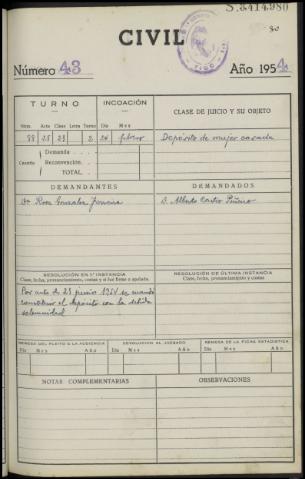 S.3414.980
CIVIL
Número 43 Año 1954
TURNO INCOACIÓN CLASE DE JUICIO Y SU OBJETO
Núm. Año Clase Letra Turno Día Mes
2 24 febrero Depósito de mujer casada
Demanda
Cuantía Reconvención
TOTAL
DEMANDANTES DEMANDADOS
Dª Rosa González D. Alberto Castro Piñeiro
RESOLUCIÓN EN 1ª INSTANCIA RESOLUCIÓN DE ÚLTIMA INSTANCIA
Clase, fecha, pronunciamientos, costas y si fué firme o apelada. Clase, fecha, pronunciamientos y costas
Por auto de 23 junio 1954 se mandó
constituir el depósito con la debida
solemnidad
REMESA DEL PLEITO A LA AUDIENCIA DEVOLUCIÓN AL JUZGADO REMESA DE LA FICHA ESTADÍSTICA
Día Mes Año Día Mes Año Día Mes Año
NOTAS COMPLEMENTARIAS OBSERVACIONES